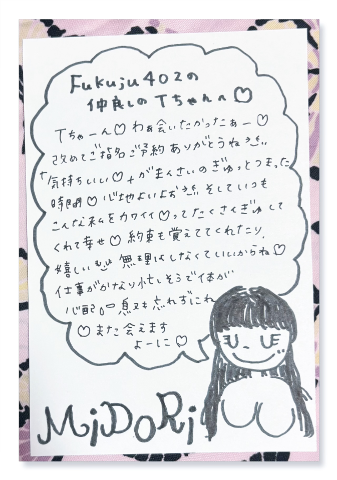 Fukuju402の
仲良しのTちゃんへ♡
Tちゃーん♡わぁ会いたかったぁー♡
改めてご指名ご予約ありがとうね
「気持ちいい♡+がまんさいのぎゅっとつまった
時間♡心地よいよぉ そしていつも
こんな私をカワイイ♡ってたくさんぎゅして
くれて幸せ♡約束も覚えててくれたり、
嬉しい 無理はしなくていいからね♡
仕事がかなり忙しそうで体が
心配 息ヌキ忘れずにね
♡また会えます
よーに♡
MiDORi